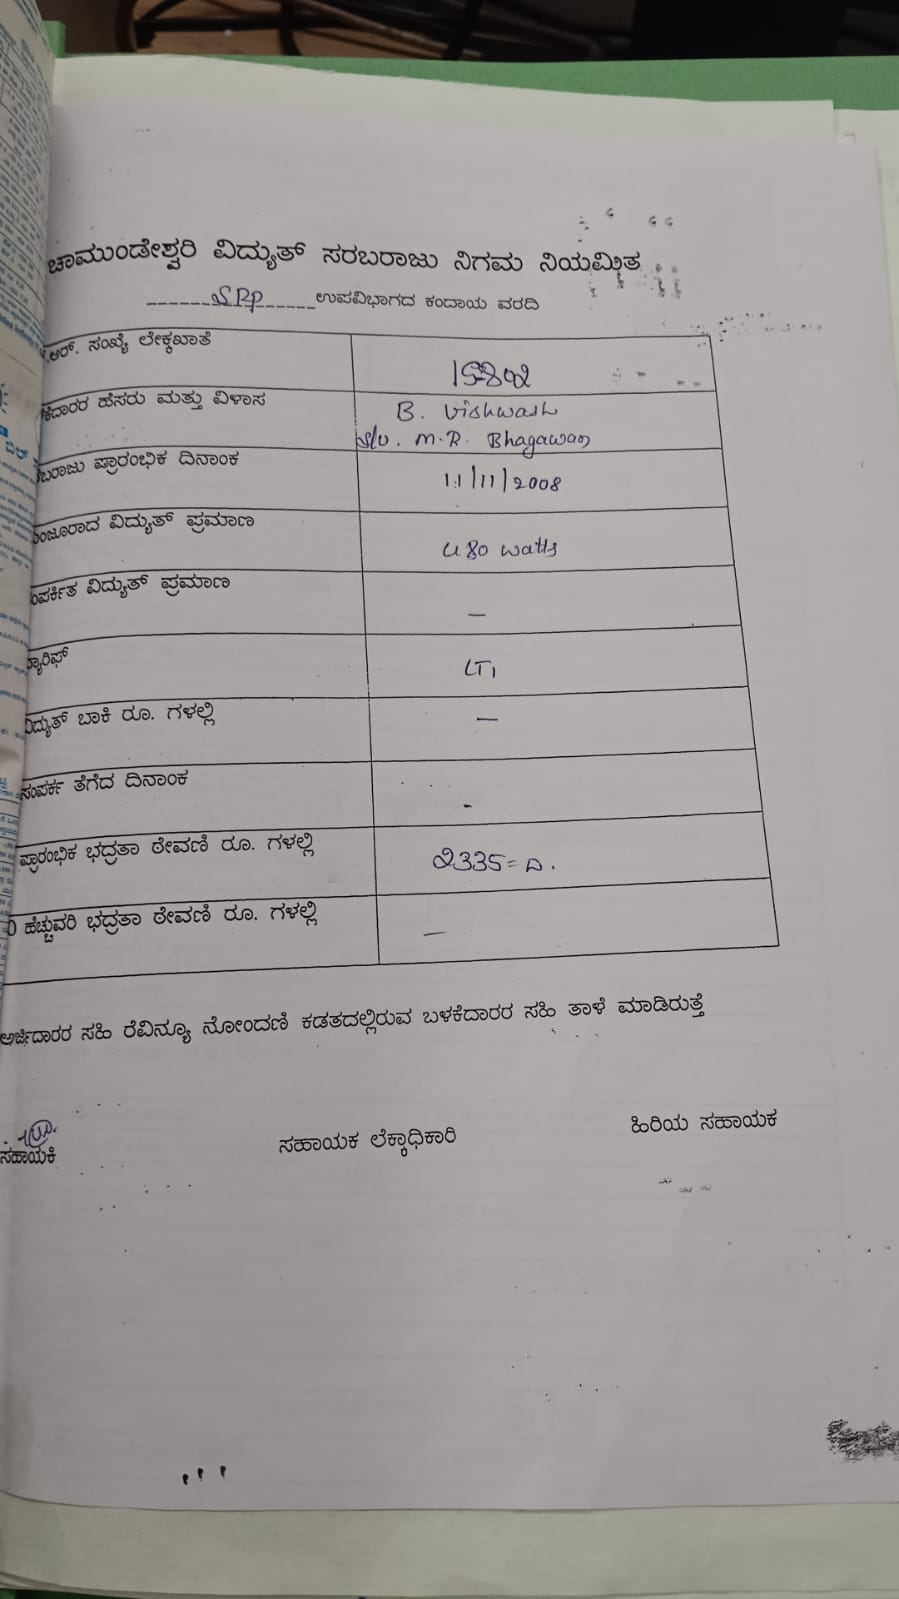 ಚಾಮುಂಡೇಶ್ವರಿ ವಿದ್ಯುತ್ ಸರಬರಾಜು ನಿಗಮ ನಿಯಮಿತ
SRP ಉಪವಿಭಾಗದ ಕಂದಾಯ ವರದಿ
.ಆರ್. ಸಂಖ್ಯೆ ಲೇಕ್ಕಖಾತೆ
ಕೆದಾರರ ಹೆಸರು ಮತ್ತು ವಿಳಾಸ B. Vishwash
S/o. M.R. Bhagawan
ಬರಾಜು ಪ್ರಾರಂಭಿಕ ದಿನಾಂಕ 11/11/2008
ಂಜೂರಾದ ವಿದ್ಯುತ್ ಪ್ರಮಾಣ 480 watts
ಂಪರ್ಕಿತ ವಿದ್ಯುತ್ ಪ್ರಮಾಣ –
್ಯಾರಿಫ್ LT1
ವಿದ್ಯುತ್ ಬಾಕಿ ರೂ. ಗಳಲ್ಲಿ –
ಸಂಪರ್ಕ ತೆಗೆದ ದಿನಾಂಕ -
ಪ್ರಾರಂಭಿಕ ಭದ್ರತಾ ಠೇವಣಿ ರೂ. ಗಳಲ್ಲಿ 2335=
0 ಹೆಚ್ಚುವರಿ ಭದ್ರತಾ ಠೇವಣಿ ರೂ. ಗಳಲ್ಲಿ –
ಅರ್ಜಿದಾರರ ಸಹಿ ರೆವಿನ್ಯೂ ನೋಂದಣಿ ಕಡತದಲ್ಲಿರುವ ಬಳಕೆದಾರರ ಸಹಿ ತಾಳೆ ಮಾಡಿರುತ್ತೆ
ಸಹಾಯಕಿ ಸಹಾಯಕ ಲೆಕ್ಕಾಧಿಕಾರಿ ಹಿರಿಯ ಸಹಾಯಕ